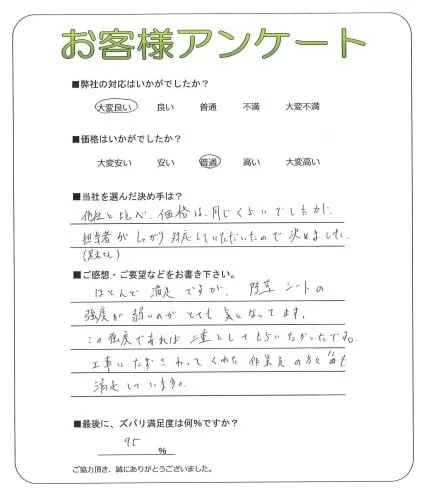 お客様アンケート
■弊社の対応はいかがでしたか？
大変良い 良い 普通 不満 大変不満
■価格はいかがでしたか？
大変安い 安い 普通 高い 大変高い
■当社を選んだ決め手は？
他社と比べ、価格は同じくらいでしたが、
担当者がしっかり対応していただいたので決めました。
■ご感想・ご要望などをお書き下さい。
ほとんど満足ですが、防草シートの
強度が弱いのがとても気になってます。
この強度であれば二重としてもらいたかったです。
工事にたずさわってくれた作業員の方々
満足しています。
■最後に、ズバリ満足度は何％ですか？
95 %
ご協力頂き、誠にありがとうございました。